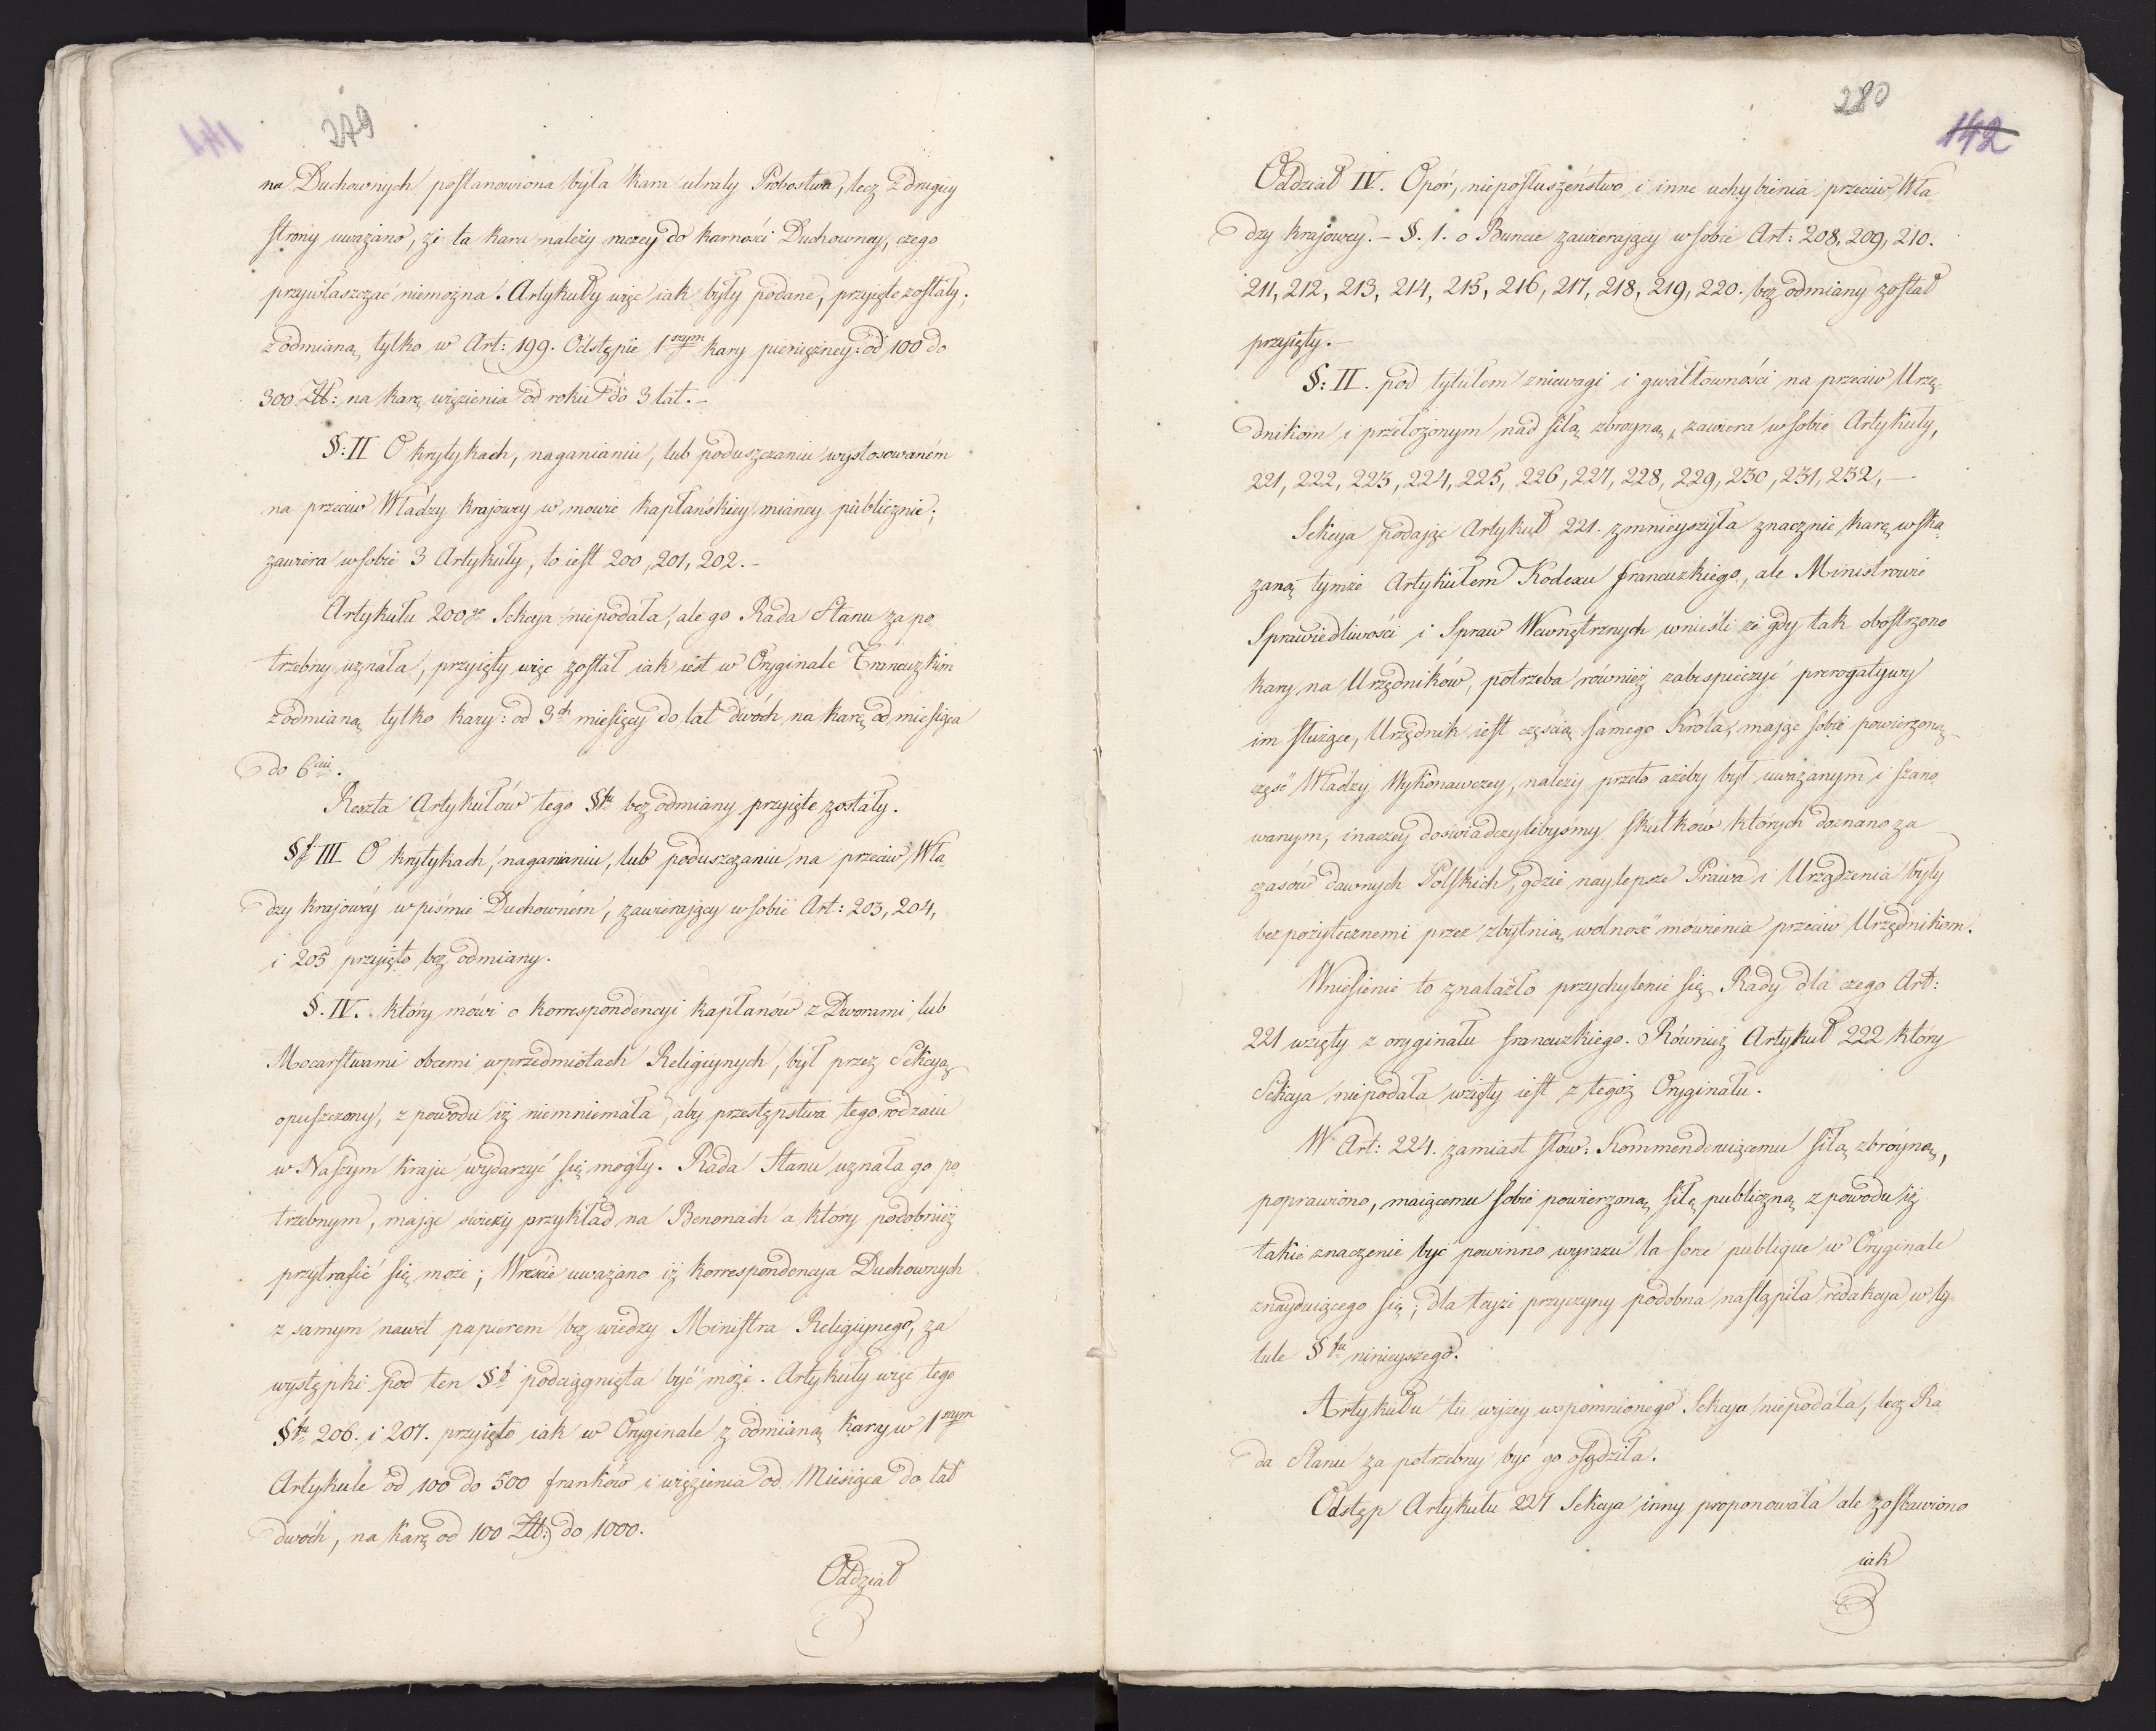 279
na Duchownych postanowiona była kara utraty Probostwa, lecz z drugiey
strony uważano, że ta kara należy raczey do karności Duchowney, czego
przywłaszczać niemożna. Artykuły więc iak były podane, przyięte zostały;
z odmianą tylko w Art: 199. Odstępie 1szym kary pieniężney: od 100 do
300 Złł: na karę więzienia od roku do 3 lat. –
§: II O krytykach, naganianiu, lub poduszczaniu wystosowaném
na przeciw Władzy krajowey w mowie kapłańskiey mianey publicznie;
zawiera w sobie 3 Artykuły, to iest 200, 201, 202. –
Artykułu 200go Sekcya niepodała, ale go Rada Stanu za po
trzebny uznała, przyięty więc został iak iest w Oryginale Francuzkim
z odmianą tylko kary: od 3ch miesięcy do lat dwóch na karę od miesiąca
do 6ciu.
Reszta Artykułów tego §fu bez odmiany przyięte zostały.
§f III O krytykach, naganianiu, lub poduszczaniu na przeciw Wła
dzy krajowéy w piśmie Duchowném, zawierający w sobie Art: 203, 204,
i 205 przyięto bez odmiany.
§. IV. który mówi o korrespondencyi kapłanów z Dworami lub
Mocarstwami obcemi w przedmiotach Religiynych, był przez Sekcyą
opuszczony, z powodu iż niemniemała, aby przestępstwa tego rodzaiu
w Naszym kraju wydarzyć się mogły. Rada Stanu uznała go po
trzebnym, mając świeży przykład na Benonach a który podobnież
przytrafić się może; Wreście uważano iż korrespondencya Duchownych
z samym nawet papieżem bez wiedzy Ministra Religiynego, za
występki pod ten §f podciągnięta być może. Artykuły więc tego
§fu 206. i 207. przyięto iak w Oryginale z odmianą kary w 1szym
Artykule od 100 do 500 franków i więzienia od Miesiąca do lat
dwóch, na karę od 100 Złł: do 1000.
Oddział
280
142
Oddział IV. Opór, nieposłuszeństwo i inne uchybienia przeciw Wła
dzy krajowey. – §. 1. o Buncie zawierający w sobie Art: 208, 209, 210.
211, 212, 213, 214, 215, 216, 217, 218, 219, 220. bez odmiany został
przyięty. –
§: II. pod tytułem zniewagi i gwałtowności na przeciw Urzę-
dnikom i przełożonym nad siłą zbroyną, zawiera w sobie Artykuły,
221, 222, 223, 224, 225, 226, 227, 228, 229, 230, 231, 232, –
Sekcya podając Artykuł 221. zmnieyszyła znacznie karę wska
zaną tymże Artykułem Kodexu francuzkiego, ale Ministrowie
Sprawiedliwości i Spraw Wewnętrznych wnieśli że gdy tak obostrzono
kary na Urzędników, potrzeba również zabespieczyć prerogatywy
im służące, Urzędnik iest częścią samego Króla, mając sobie powierzoną
część Władzy Wykonawczey, należy przeto ażeby był uważanym i szano
wanym, inaczey doświadczylibyśmy skutków których doznano za
czasów dawnych Polskich, gdzie naylepsze Prawa i Urządzenia były
bez pożytecznemi przez zbytnią wolność mówienia przeciw Urzędnikom.
Wniesienie to znalazło przychylenie się Rady dla czego Art:
221 wzięty z oryginału francuzkiego. Również Artykuł 222 który
Sekcya niepodała wzięty iest z tegoż Oryginału.
W Art: 224. zamiast słów: Kommenderuiącemu siłą zbroyną,
poprawiono, maiącemu sobie powierzoną siłę publiczną z powodu iż
takie znaczenie być powinno wyrazu la force publique w Oryginale
znayduiącego się; dla teyże przyczyny podobna nastąpiła redakcya w ty-
tule §fu ninieyszego.
Artykułu tu wyżey wspomnionego Sekcya niepodała, lecz Ra
da Stanu za potrzebny być go osądziła.
Odstęp Artykułu 227 Sekcya inny proponowała ale zostawiono
iak